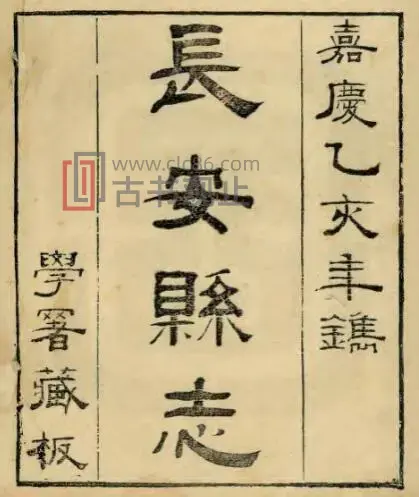 嘉慶乙亥年鐫
長安縣志
學署藏板
www.clc86.com